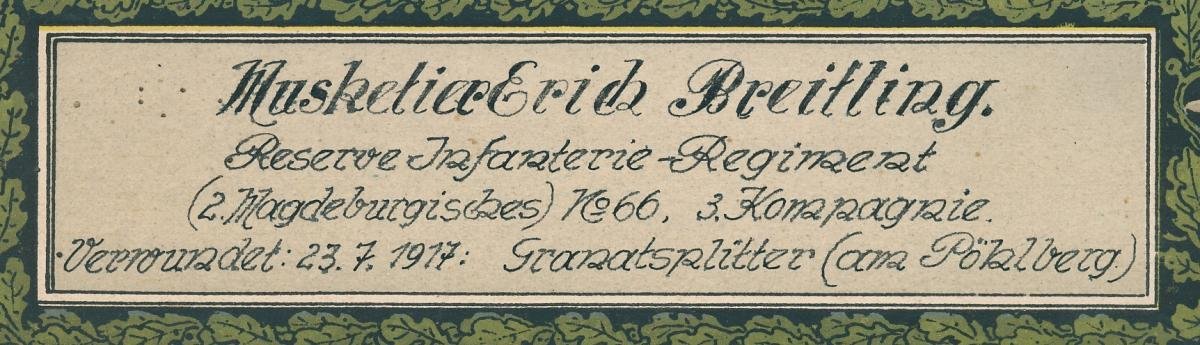 Musketier Erich Breitling.
Reserve Infanterie-Regiment
(2. Magdeburgisches) No 66, 3. Kompagnie.
Verwundet: 23. 7. 1917: Granatsplitter (am Pöhlberg.)